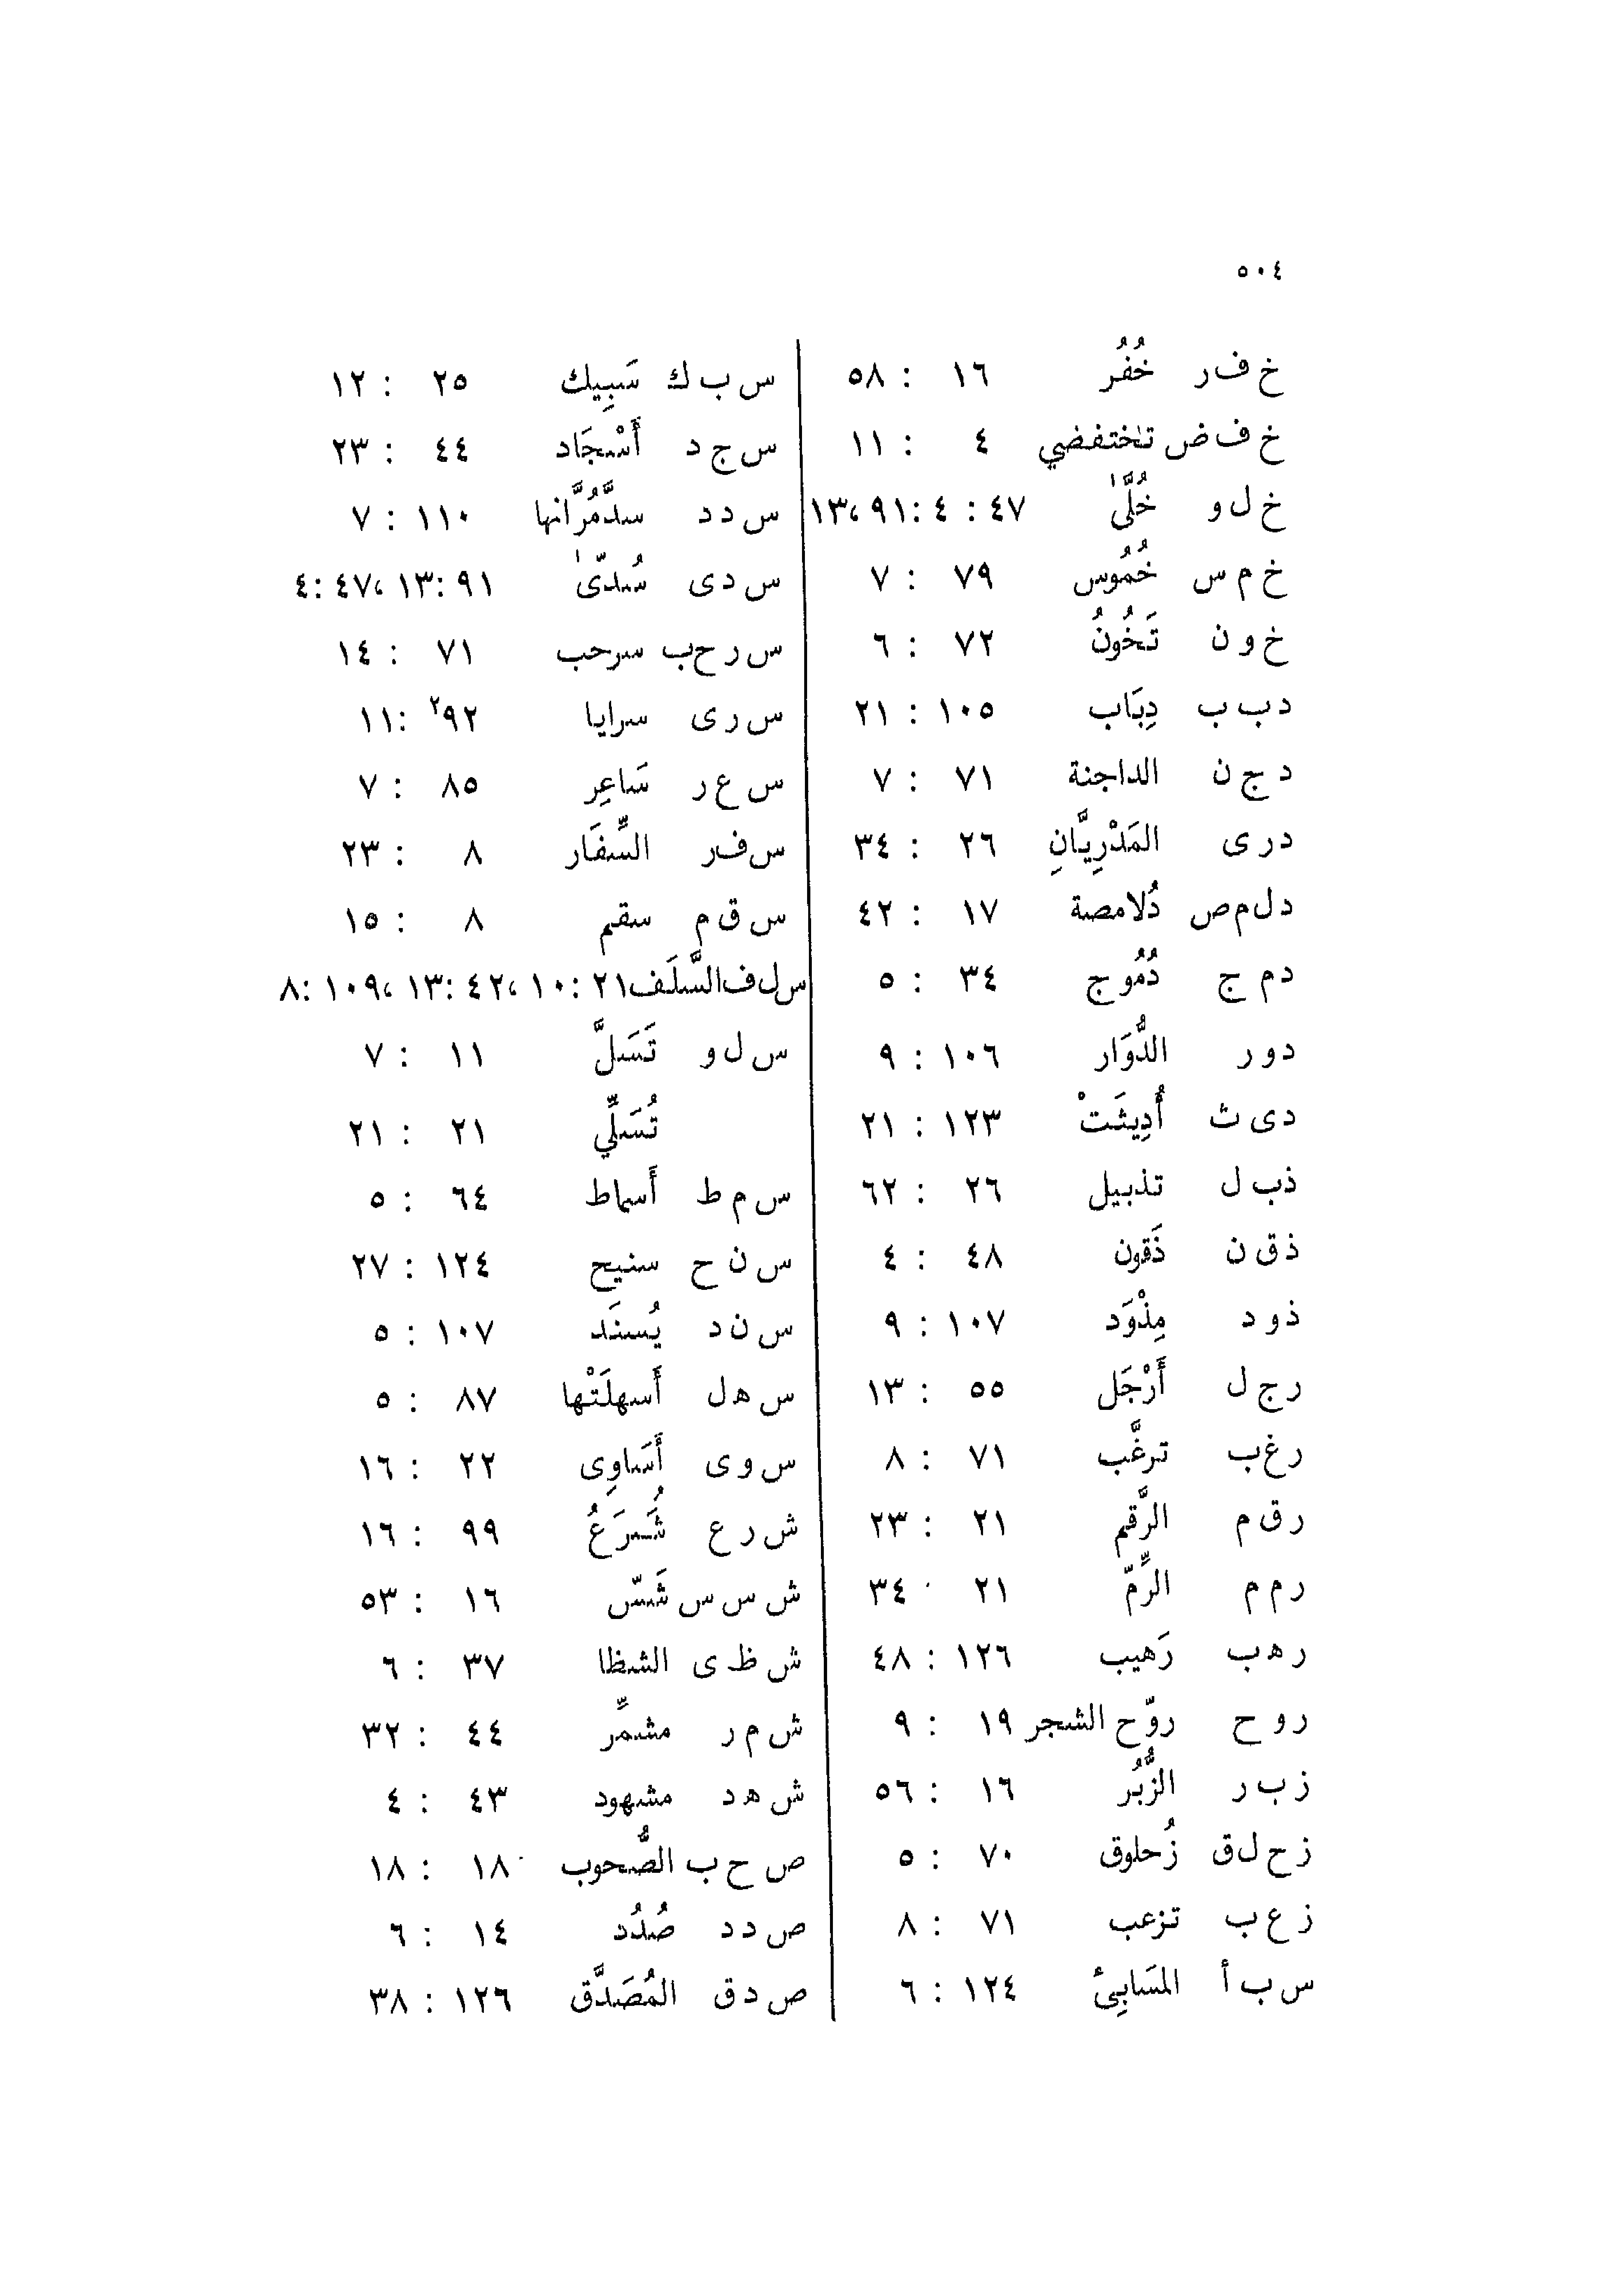 ٥٠٤
خ ف ر خُفُر ١٦ : ٥٨
خ ف ض تختفضي ٤ : ١١
خ ل و خُلًّى ٤٧ : ٤ ، ٩١ : ١٣
خ م س خُمُوس ٧٩ : ٧
خ و ن تَخُونُ ٧٢ : ٦
د ب ب دِبَاب ١٠٥ : ٢١
د ج ن الداجنة ٧١ : ٧
د ر ى المَدْرِيَّانِ ٢٦ : ٣٤
د ل م ص دُلامصة ١٧ : ٤٢
د م ج دُمُوج ٣٤ : ٥
د و ر الدُّوَار ١٠٦ : ٩
د ى ث أُدِيثَتْ ١٢٣ : ٢١
ذ ب ل تذبيل ٢٦ : ٦٢
ذ ق ن ذَقون ٤٨ : ٤
ذ و د مِذْوَد ١٠٧ : ٩
ر ج ل أَرْجَل ٥٥ : ١٣
ر غ ب ترغَّب ٧١ : ٨
ر ق م الرَّقم ٢١ : ٢٣
ر م م الرِّمّ ٢١ : ٣٤
ر ه ب رَهيب ١٢٦ : ٤٨
ر و ح روّح الشجر ١٩ : ٩
ز ب ر الزُّبُر ١٦ : ٥٦
ز ح ل ق زُحلوق ٧٠ : ٥
ز ع ب تزعب ٧١ : ٨
س ب أ المسَابِئ ١٢٤ : ٦
س ب ك سَبِيك ٢٥ : ١٢
س ج د أَسْجَاد ٤٤ : ٢٣
س د د سدَّمُرَّانها ١١٠ : ٧
س د ى سُدّىٰ ٩١ : ١٣ ، ٤٧ : ٤
س ر ح ب سرحب ٧١ : ١٤
س ر ى سرايا ٩٢٢ : ١١
س ع ر سَاعِر ٨٥ : ٧
س ف ر السِّفَار ٨ : ٢٣
س ق م سقم ٨ : ١٥
س ل ف السَّلَف ٢١ : ١٠ ، ٤٢ : ١٣ ، ١٠٩ : ٨
س ل و تَسَلَّ ١١ : ٧
تُسَلِّي ٢١ : ٢١
س م ط أَسماط ٦٤ : ٥
س ن ح سنيح ١٢٤ : ٢٧
س ن د يُسنَد ١٠٧ : ٥
س ه ل أَسهلَتْها ٨٧ : ٥
س و ى أَسَاوِى ٢٢ : ١٦
ش ر ع شُرَعُ ٩٩ : ١٦
ش س س شَسّ ١٦ : ٥٣
ش ظ ى الشظا ٣٧ : ٦
ش م ر مشمِّر ٤٤ : ٣٢
ش ه د مشهود ٤٣ : ٤
ص ح ب الصُّحوب ١٨ : ١٨
ص د د صُدُد ١٤ : ٦
ص د ق المُصَدَّق ١٢٦ : ٣٨